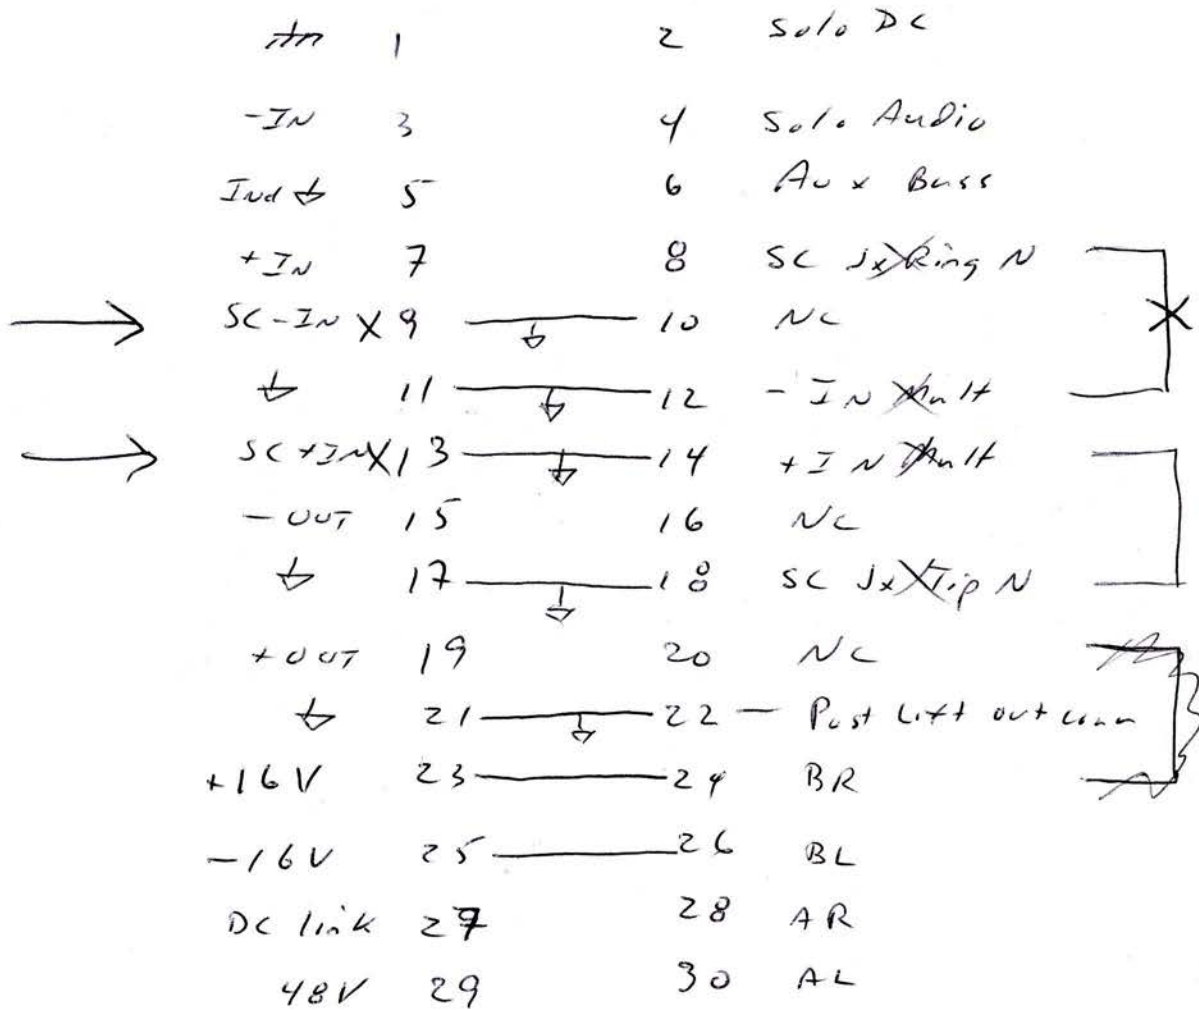 1 2 Solo DC
-IN 3 4 Solo Audio
Ind 5 6 Aux Buss
+IN 7 8 SC Jx Ring N
SC-IN X 9 10 NC
11 12 -IN Mult
SC+IN X 13 14 +IN Mult
-OUT 15 16 NC
17 18 SC Jx Tip N
+OUT 19 20 NC
21 22 - Post Lift out conn
+16V 23 24 BR
-16V 25 26 BL
DC link 27 28 AR
48V 29 30 AL